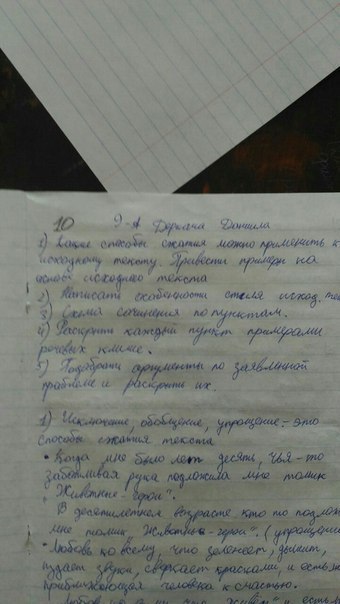 10 9-А Дермана Даниила
1) Какие способы сжатия можно применить к
исходному тексту. Привести примеры на
основе исходного текста
2) Написать особенности стиля исход. те
3) Схема сочинения по пунктам.
4) Раскрыть каждый пункт примерами
речевых клише.
5) Подобрать аргументы по заявленной
проблеме и раскрыть их.
1) Исключение, обобщение, упрощение - это
способы сжатия текста
• Когда мне было лет десять, чья-то
заботливая рука подложила мне томик
"Животные-герои".
В десятилетнем возрасте кто то подлож
мне томик "Животные-герои". (упрощение
• Любовь ко всему, что зеленеет, дышит,
издает звуки, сверкает красками, и есть л
приближающая человека к счастью.